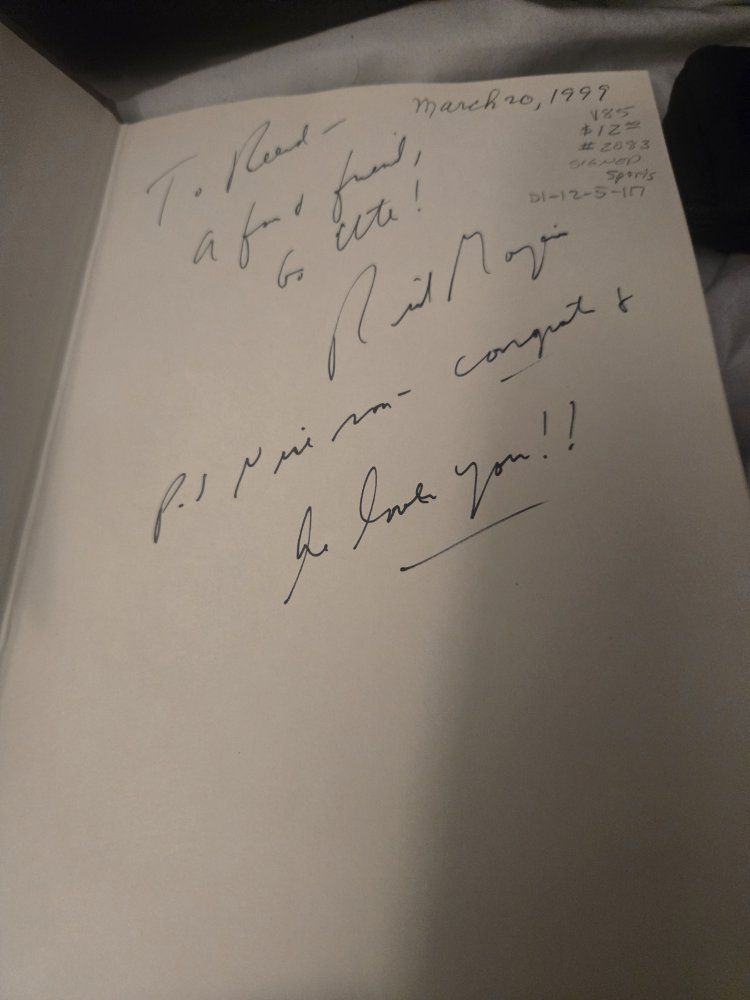 March 20, 1999
V85
$12.00
#2083
SIGNED
Sports
DI-12-5-17
To Reed-
A fond friend,
Go Utes!
Rick Majerus
P.S Nice son- congrats
he loves you!!